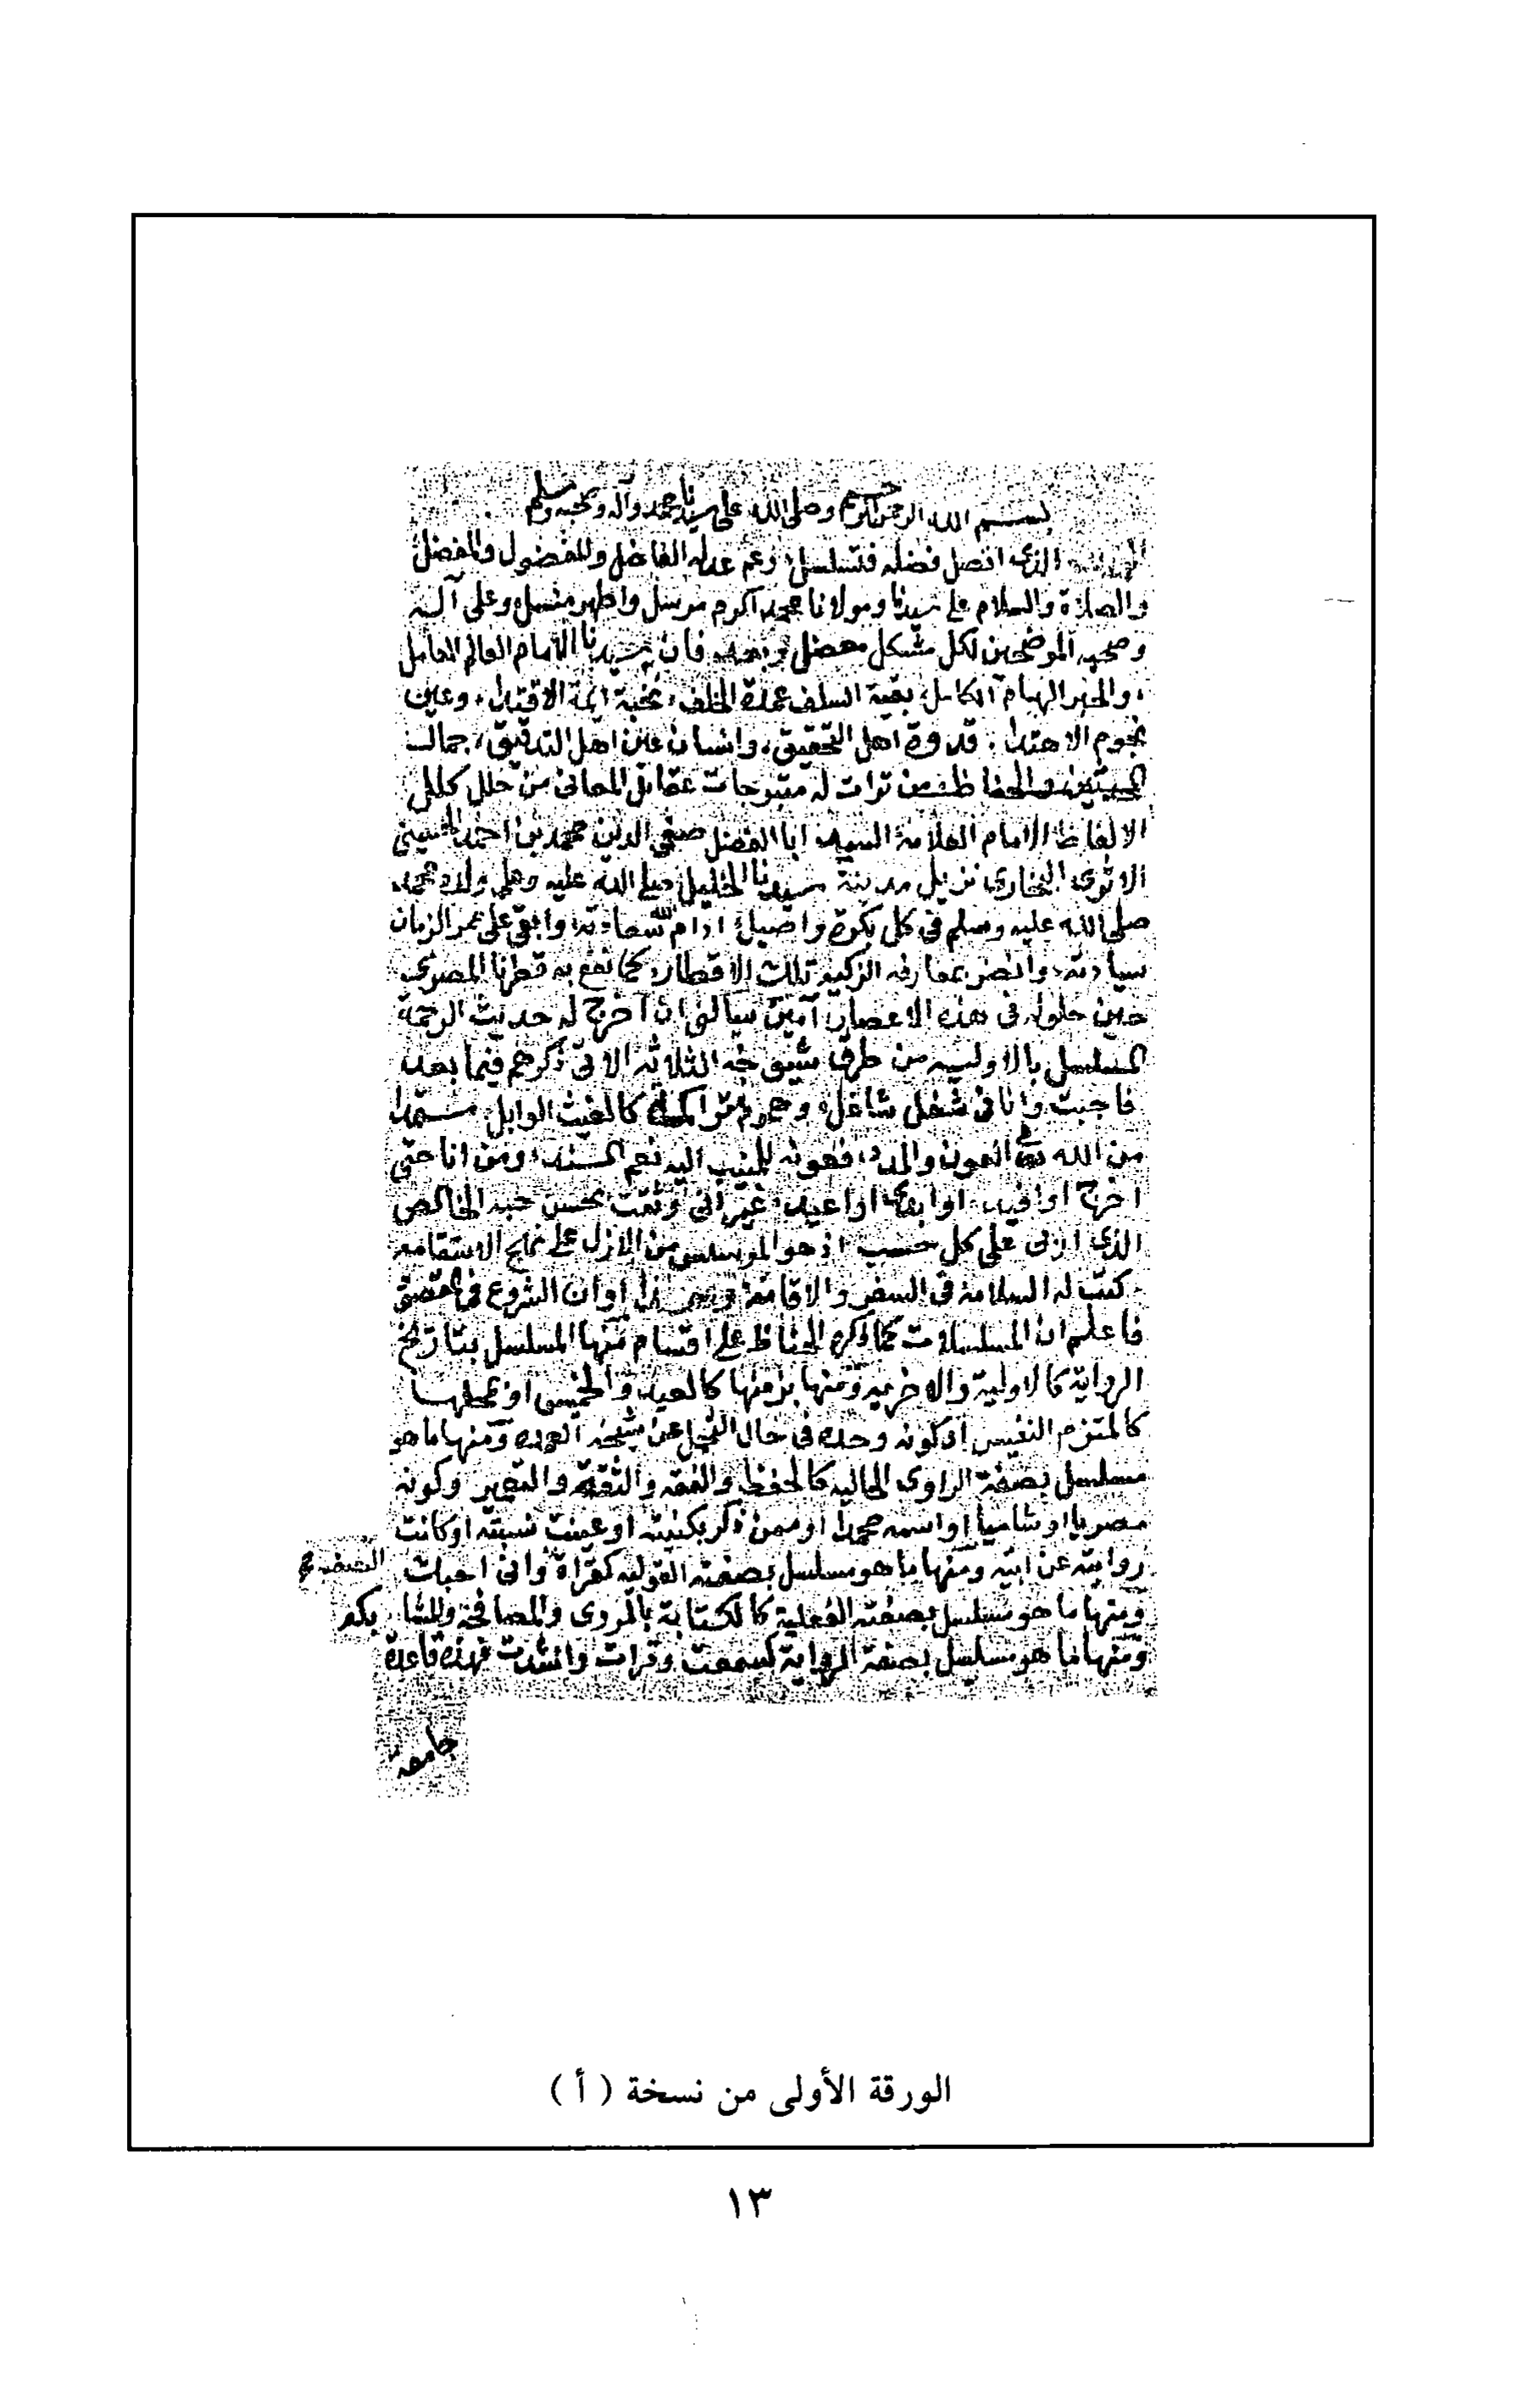 بسم الله الرحمن الرحيم وصلى الله على سيدنا محمد وآله وصحبه وسلم
الذى اتصل فضله فتسلسل وعم عدله الفاضل والمفضول والمفضل
والصلاة والسلام على سيدنا ومولانا محمد اكرم مرسل واطهر وعلى آله
وصحبه الموضحين لكل مشكل معضل وبعد فان سيدنا الامام العالم العامل
والحبر الهمام الكامل بقية السلف عمدة الخلف نخبة ايمة الاقتدا وعين
نجوم الاهتدا قدوة اهل التحقيق وانسان عين اهل التدقيق جمال
من خلال كلل
الالفاظ الامام العلامة السيد ابا الفضل صفى الدين محمد بن احمد الحسينى
البخارى نزيل مدينة سيدنا الخليل صلى الله عليه وعلى ولده محمد
صلى الله عليه وسلم فى كل بكرة واصيل ادام الله سعادته وابقى على ممر الزمان
سيادته بمعارفه الزكيه تلك الاقطار كما نفع به قطرنا المصرى
حين حلوله فى هذه الاعصار آمين سالنى ان اخرج له حديث الرحمة
المسلسل بالاوليه من طرق شيوخه الثلاثة الاتى ذكرهم فيما بعد
فاجبت وانا فى شغل شاغل كالغيث الوابل مستمدا
من الله تعالى العون والمدد فعونه للمنيب اليه نعم السند ومن انا حتى
اخرج او افيد او ابدى او اعيد غير انى وثقت بحسن حبه الخالص
الذى على كل حسب اذ هو من الازل على نهج الاستقامه
كتب له السلامة فى السفر والاقامة اوان الشروع فى المقصد
فاعلم ان المسلسلات كما ذكره الحفاظ على اقسام منها المسلسل بتاريخ
الرواية كالاولية والاخريه ومنها بزمنها كالعيد والخميس او بمحلها
كالملتزم النفيس او كونه وحده فى حال عن شيخه العمده ومنها ما هو
مسلسل بصفة الراوى الحاليه كالحفظ والفقه والثقة وكونه
مصريا او شاميا او اسمه محمدا او ممن ذكر بكنيته او عينت نسبته او كانت
روايته عن ابيه ومنها ما هو مسلسل بصفته القوليه كقراة وانى احبك
ومنها ما هو مسلسل بصفته الفعلية كالكتابة بالمروى والمصافحة
ومنها ما هو مسلسل بصفة الرواية كسمعت وقرات وانشدت فهذه قاعدة
جامعة
الورقة الأولى من نسخة ( أ )
١٣